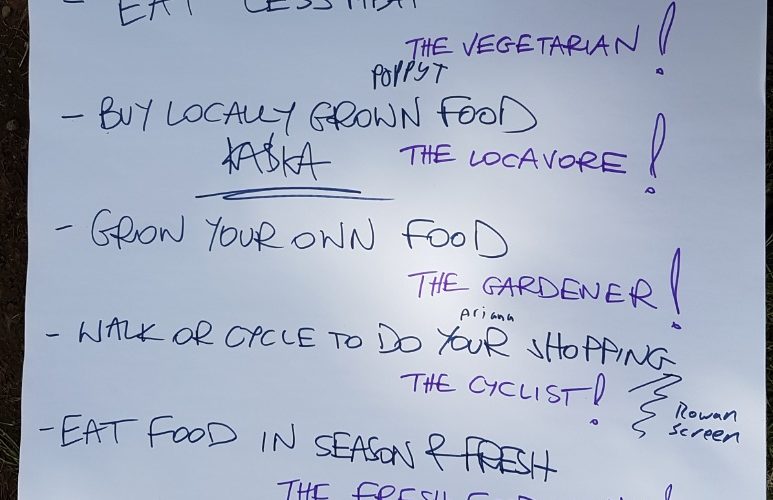 - EAT LESS MEAT
THE VEGETARIAN!
POPPY T
- BUY LOCALLY GROWN FOOD
KASKA
THE LOCAVORE!
- GROW YOUR OWN FOOD
THE GARDENER!
Ariana
- WALK OR CYCLE TO DO YOUR SHOPPING
THE CYCLIST!
Rowan
screen
- EAT FOOD IN SEASON & FRESH
THE FRESH